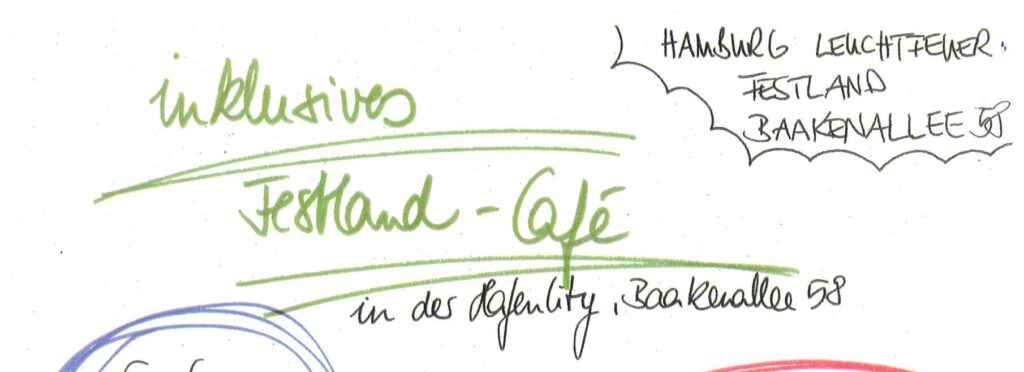 inklusives
Festland - Café
in der HafenCity, Baakenallee 58
HAMBURG LEUCHTFEUER
FESTLAND
BAAKENALLEE 58